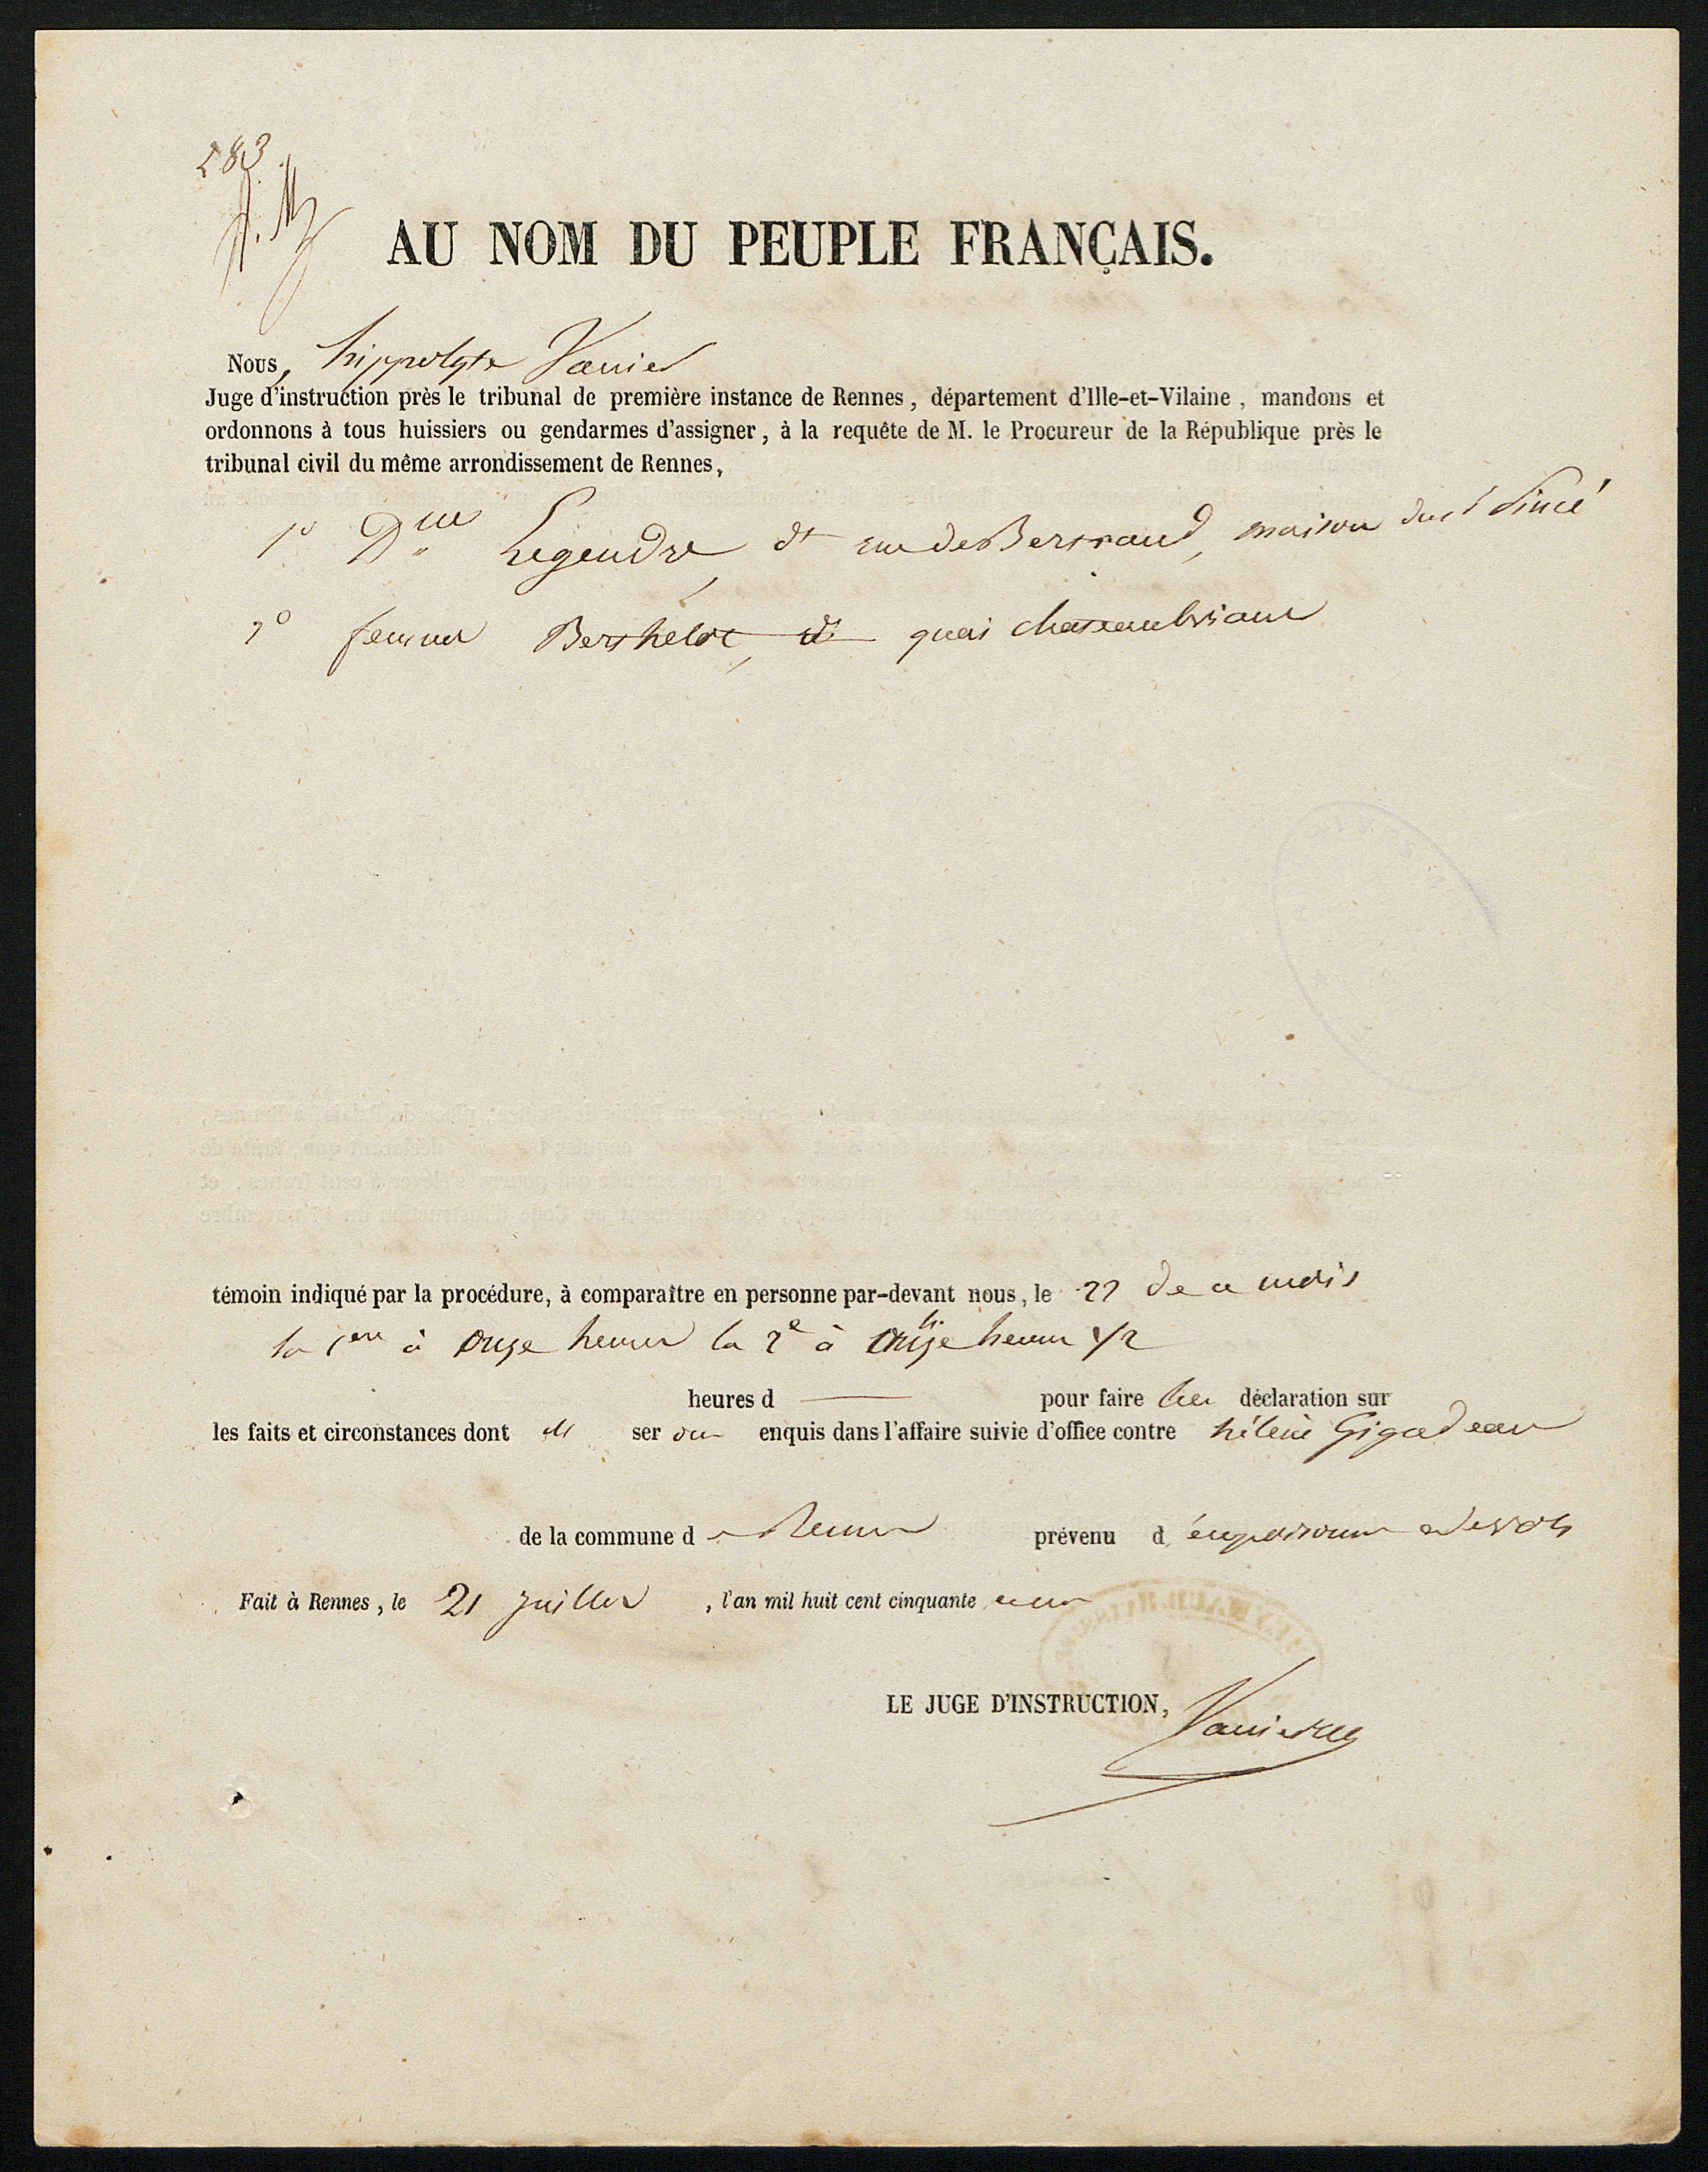 283
AU NOM DU PEUPLE FRANÇAIS.
Nous, hippolyte Vanier
Juge d'instruction près le tribunal de première instance de Rennes, département d'Ille-et-Vilaine, mandons et
ordonnons à tous huissiers ou gendarmes d'assigner, à la requête de M. le Procureur de la République près le
tribunal civil du même arrondissement de Rennes,
1° Dlle Legendre, dt rue de Bertrand, maison du st Sincé
2° femme Berthelot, dt quai chateaubriand
témoin indiqué par la procédure, à comparaître en personne par-devant nous, le 22 de ce mois
la 1ere à onze heures la 2e à onze heures 1/2
heures d pour faire leur déclaration sur
les faits et circonstances dont elles ser ont enquis dans l'affaire suivie d'office contre héléne Gigadeau
de la commune d e Rennes prévenu d'empoisonnt et de vols
Fait à Rennes, le 21 juillet, l'an mil huit cent cinquante un
LE JUGE D'INSTRUCTION,
Vanier